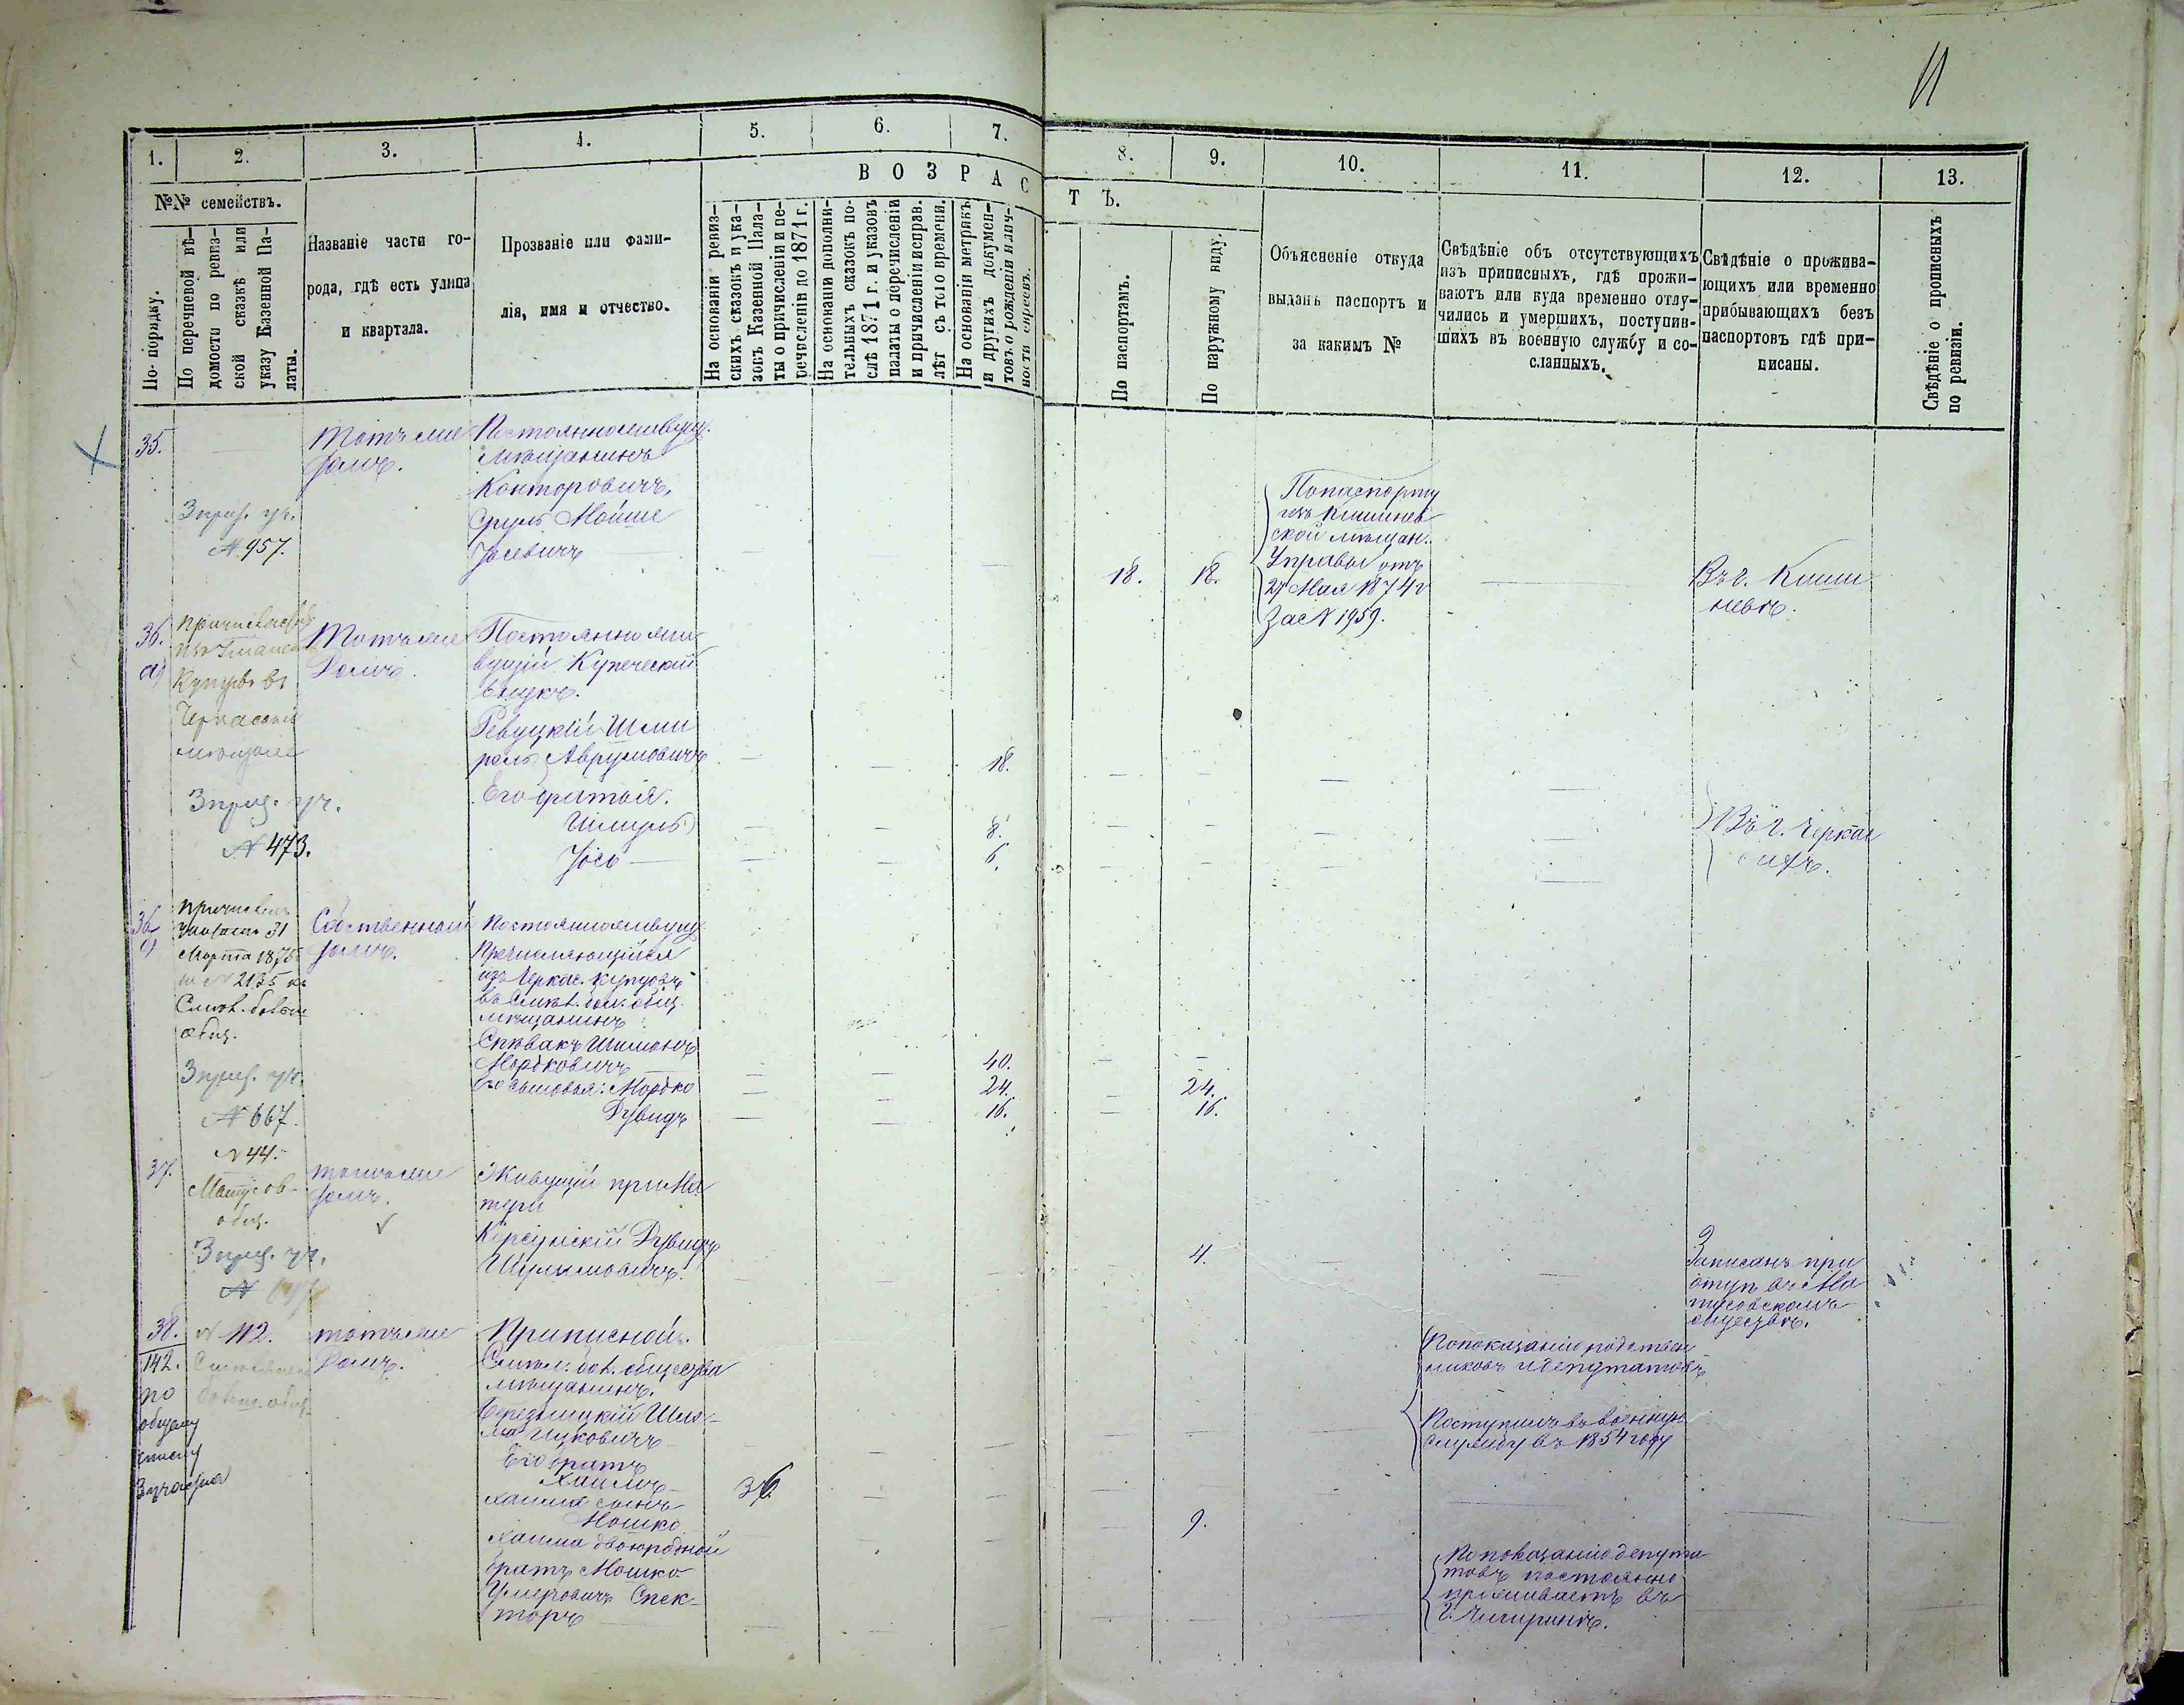 11
1.
2.
3.
4.
5.
6.
7.
8.
9.
10.
11.
12.
13.
№№ семействъ.
По порядку.
По перечневой вѣ-
домости по ревиз-
ской сказкѣ или
указу Казенной Па-
латы.
Названіе части го-
рода, гдѣ есть улица
и квартала.
Прозваніе или фами-
лія, имя и отчество.
ВОЗРАС
ТЪ.
На основаніи ревиз-
скихъ сказокъ и ука-
зокъ Казенной Пала-
ты о причисленіи и пе-
речисленіи до 1871 г.
На основаніи дополни-
тельныхъ сказокъ по-
слѣ 1871 г. и указовъ
палаты о перечисленіи
и причисленіи исправ.
лѣт съ того времени.
На основаніи метрикъ
и другихъ докумен-
товъ о рожденіи и лич-
ности евреевъ.
По паспортамъ.
По наружному виду.
Объясненіе откуда
выданъ паспортъ и
за какимъ №
Свѣдѣніе объ отсутствующихъ
изъ приписныхъ, гдѣ прожи-
ваютъ или куда временно отлу-
чились и умершихъ, поступив-
шихъ въ военную службу и со-
сланныхъ.
Свѣдѣніе о прожива-
ющихъ или временно
прибывающихъ безъ
паспортовъ гдѣ при-
писаны.
Свѣдѣніе о прописныхъ
по ревизіи.
35.
№ 957.
Тотъ же
домъ.
Постоянноживущ.
мѣщанинъ
Конторовичъ,
Сруль Мойше
Іосевичъ
18.
18.
По паспорту
изъ Кишинев
ской мѣщан.
Управы отъ
27 Мая 1874 г
за № 1959.
Въ г. Киши
невѣ.
36.
а)
Купцовъ въ
Черкаскіе
мѣщане
№ 473.
Тотъ же
Домъ.
Постоянно жи-
вущій Купеческій
внукъ.
Ревуцкій Шми
рель Аврумовичъ
18.
Его братья:
Шмуль
8.
Іось
6.
Въ г. Черкас
сахъ.
36
Марта 1875
№ 2135
общ.
№ 667.
Собственный
домъ.
Постоянноживущ.
Перечисляющійся
изъ Черкас. купцовъ
мѣщанинъ
Спѣвакъ Шимонъ
Мордковичъ
40.
Его сыновья: Мордко
24.
24.
Дувидъ
16.
16.
37.
№ 44.
Матусов
общ.
тотъ же
домъ.
Живущій при Ма
тери
Корсунскій Дувидъ
Шулимовичъ.
4.
Записанъ при
отцѣ въ Ма
тусовскомъ
обществѣ.
38.
142.
по
общему
списку
№ 112.
тотъ же
Домъ.
Приписной.
общества
мѣщанинъ.
Ицковичъ
Его братъ
Хаимъ
36.
Хаима сынъ
Мошко
9.
Хаима двоюродный
братъ Мошко
Умеровичъ Спек-
торъ
По показанію родствен
никовъ и депутатовъ
Поступилъ въ военную
службу въ 1854 году
По показанію депута
товъ постоянно
проживаетъ въ
г. Чигиринѣ.